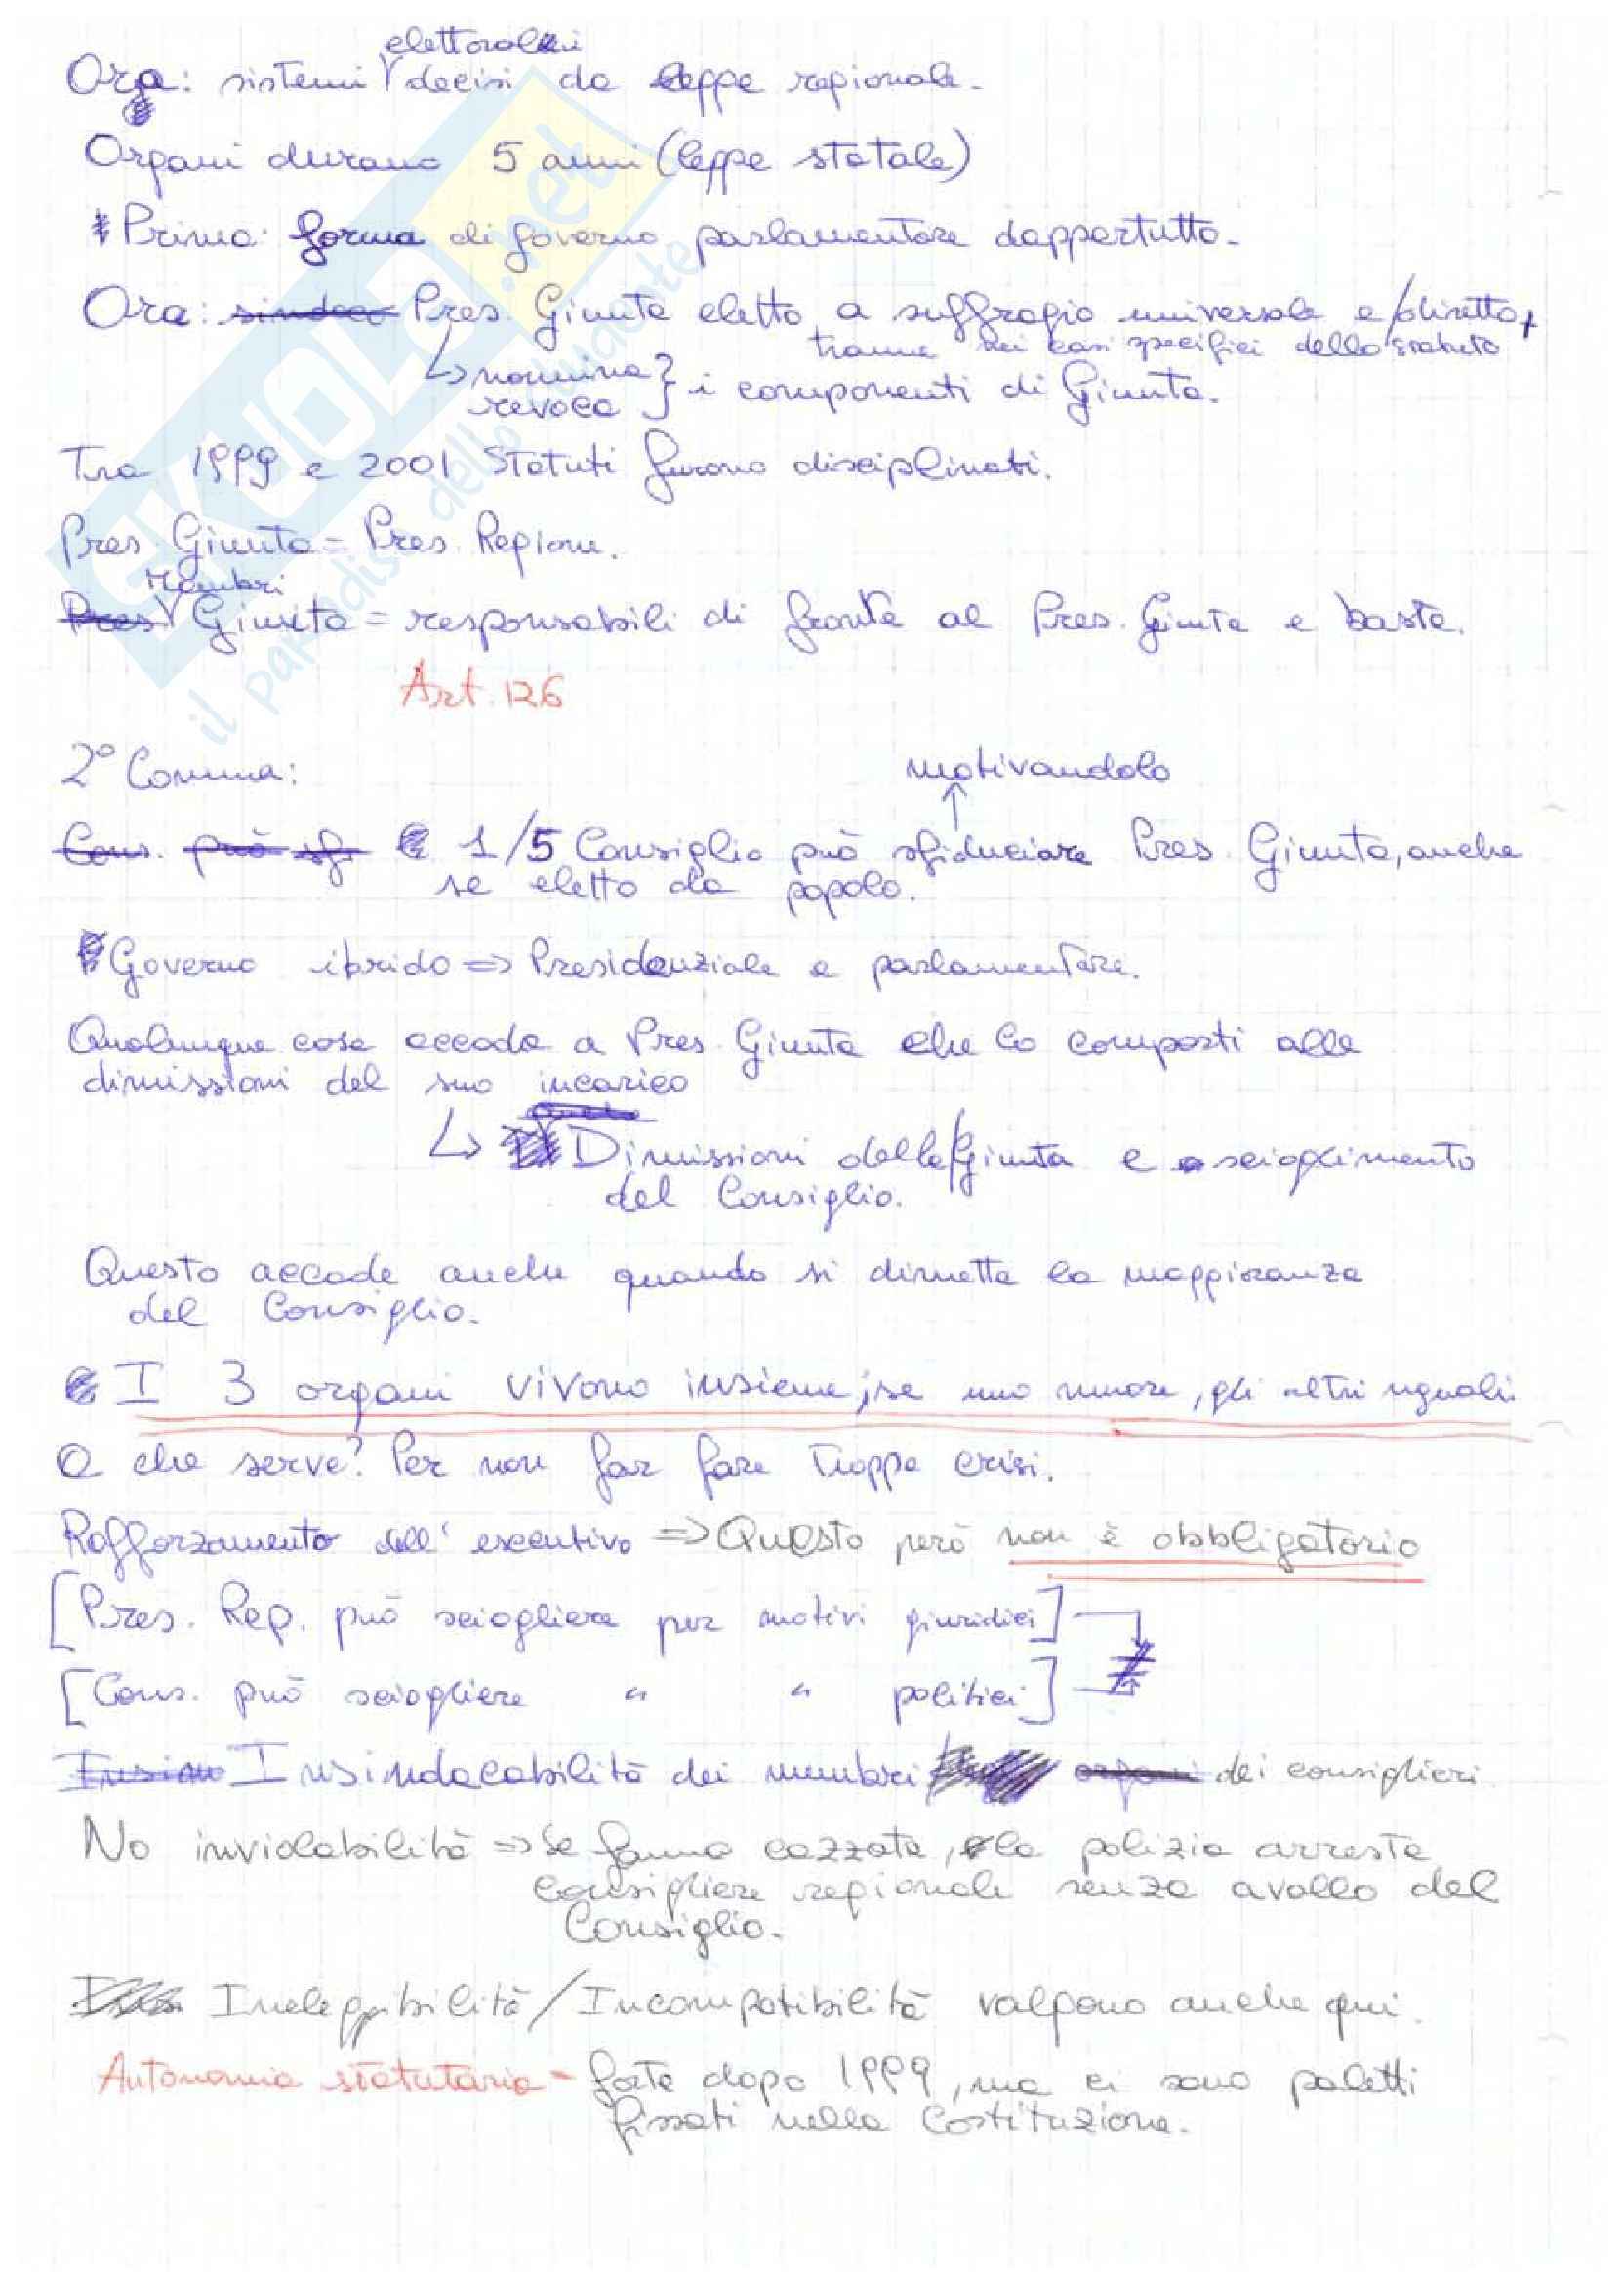 Ora: sistemi elettorali decisi da legge regionale.
Organi durano 5 anni (legge statale)
Prima: forma di governo parlamentare dappertutto.
Ora: sindaco Pres. Giunta eletto a suffragio universale e/diretto,
tranne nei casi specifici dello statuto
↳ nomina } i componenti di Giunta.
revoca
Tra 1999 e 2001 Statuti furono disciplinati.
Pres. Giunta = Pres. Regione.
Pres Membri Giunta = responsabili di fronte al Pres. Giunta e basta.
Art. 126
2° Comma:
motivandolo
↑
Cons. può sfi 1/5 Consiglio può sfiduciare Pres. Giunta, anche
se eletto da popolo.
Governo ibrido => Presidenziale e parlamentare.
Qualunque cosa accada a Pres. Giunta che lo comporti alle
dimissioni del suo incarico
anche
↳ Dimissioni della/Giunta e scioglimento
del Consiglio.
Questo accade anche quando si dimette la maggioranza
del Consiglio.
I 3 organi vivono insieme; se uno muore, gli altri uguali
A che serve? Per non far fare troppe crisi.
Rafforzamento dell'esecutivo => Questo però non è obbligatorio
[Pres. Rep. può sciogliere per motivi giuridici]
≠
[Cons. può sciogliere " " politici]
Insinu Insindacabilità dei membri organi dei consiglieri
No inviolabilità => Se fanno cazzate, la polizia arresta
consigliere regionale senza avallo del
Consiglio.
Ineleggibilità/Incompatibilità valgono anche qui.
Autonomia statutaria = forte dopo 1999, ma ci sono paletti
fissati nella Costituzione.
SKUOLA.net
il paradiso dello studente